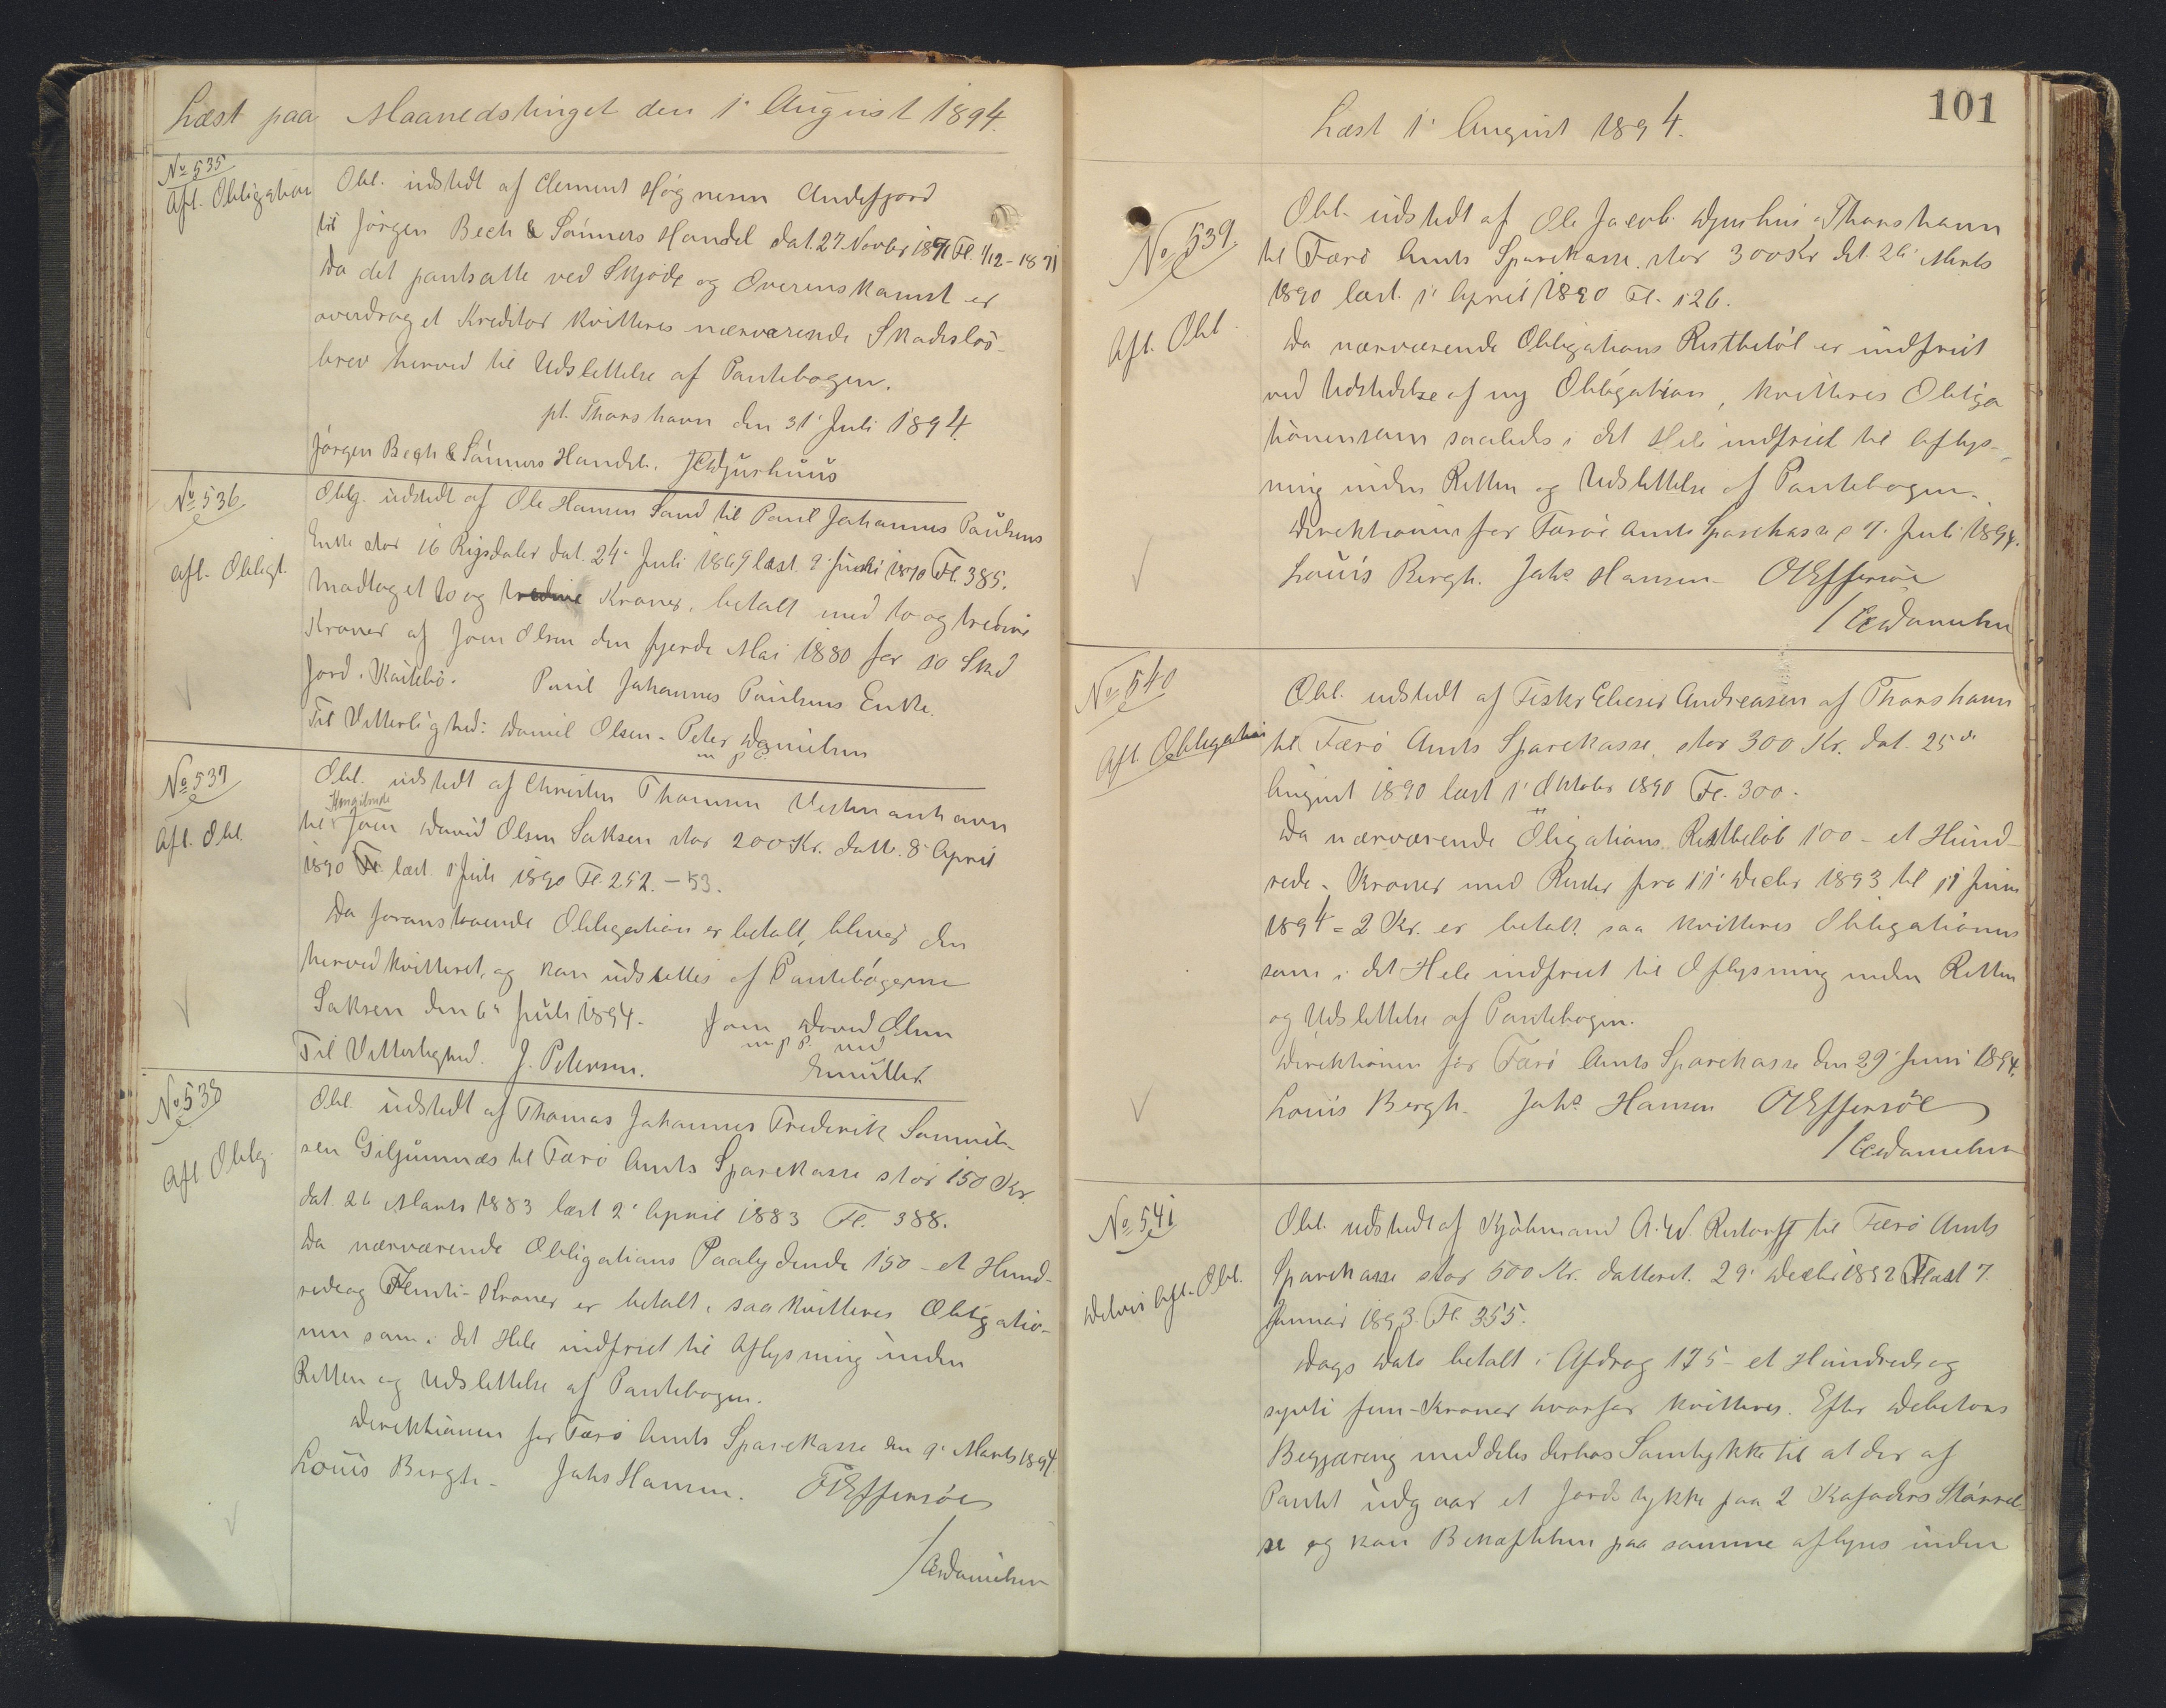 Læst paa Maanedstinget den 1' August 1894.
No 535
Afl. Obligation
Obl. udstedt af Clement Høgnesen Andefjord
til Jørgen Bech & Sønners Handel dat. 27. Novbr 1871 Fl. 1/12-1871
Da det pantsatte ved Skjøde og Overenskomst er
overdraget Kreditor kvitteres nærværende Skadesløs-
brev herved til Udslettelse af Pantebogen.
pt. Thorshavn den 31' Juli 1894.
Jørgen Bech & Sønners Handel. JCDjurhuus
No 536
Afl. Obligt.
Oblg. udstedt af Ole Hansen Sand til Poul Johannes Poulsens
Enke stor 16 Rigsdaler dat. 24' Juli 1869 læst 9' Juli 1870 Fl. 385.
Modtaget to og tredive Kroner, betalt med to og tredive
Kroner af Joen Olsen den fjerde Mai 1880 for 10 Skd
Jord. Kaitebø. Poul Johannes Poulsens Enke.
Til Vitterlighed: Daniel Olsen - Peter Danielsen
m p P.
No 537
Afl. Obl.
Obl. udstedt af Christen Thomsen Vestmanhavn
til Kongsbonde Joen David Olsen Saksen stor 200 Kr. datt. 8' April
1890 læst 1' Juli 1890 Fl. 252. - 53.
Da foranstaaende Obligation er betalt, bliver den
herved kvitteret, og kan udslettes af Pantebøgerne
Saksen den 6' Juli 1894. Joen David Olsen
m p P. med
Til Vitterlighed. J. Petersen. Emüller
No 538
Afl Oblg.
Obl. udstedt af Thomas Johannes Frederik Samuel-
sen Giljumnæs til Færø Amts Sparekasse stor 150 Kr.
dat 26 Marts 1883 læst 2' April 1883 Fl. 388.
Da nærværende Obligations Paalydende 150 - et Hund-
rede og Femti - Kroner er betalt, saa kvitteres Obligatio-
nen som i det Hele indfriet til Aflysning inden
Retten og Udslettelse af Pantebogen.
Direktionen for Færø Amts Sparekasse den 9' Marts 1894.
Louis Bergh - Johs Hansen. OEffersøe
/CCDanielsen
101
Læst 1' August 1894.
No 539
Afl. Obl.
Obl. udstedt af Ole Jacob Djurhus Thorshavn
til Færø Amts Sparekasse stor 300 Kr dat. 26' Marts
1890 læst 1' April 1890 Fl. 126.
Da nærværende Obligations Restbeløb er indfriet
ved Udstedelse af ny Obligation, kvitteres Obliga
tionen som saaledes i det Hele indfriet til Aflys-
ning inden Retten og Udslettelse af Pantebogen.
Direktionen for Færø Amts Sparekasse 4' Juli 1894.
Louis Bergh. Johs Hansen - OEffersøe
/CCDanielsen
No 540
Afl. Obligation
Obl. udstedt af Fisker Elieser Andreasen af Thorshavn
til Færø Amts Sparekasse, stor 300 Kr. dat. 25de
August 1890 læst 1' Oktober 1890 Fl. 300.
Da nærværende Öligations Restbeløb 100 - et Hund-
rede - Kroner med Renter fra 11' Decbr 1893 til 11 Juni
1894 = 2 Kr. er betalt saa kvitteres Obligationen
som i det Hele indfriet til Aflysning inden Retten
og Udslettelse af Pantebogen.
Direktionen for Færø Amts Sparekasse den 29' Juni 1894.
Louis Bergh - Johs Hansen OEffersøe
/CCDanielsen
No 541
Delvis Afl. Obl.
Obl. udstedt af Kjøbmand A. W. Restorff til Færø Amts
Sparekasse stor 500 Kr. datteret. 29' Decbr 1892 læst 7
Januar 1893. Fl. 355.
Dags Dato betalt i Afdrag 175 - et Hundrede og
syvti fem - Kroner hvorfor kvitteres. Efter Debitors
Begjæring meddeles derhos Samtykke til at der af
Pantet udgaar et Jordstykke paa 2 Kafaders Størrel-
se og kan Behæftelsen paa samme aflyses inden